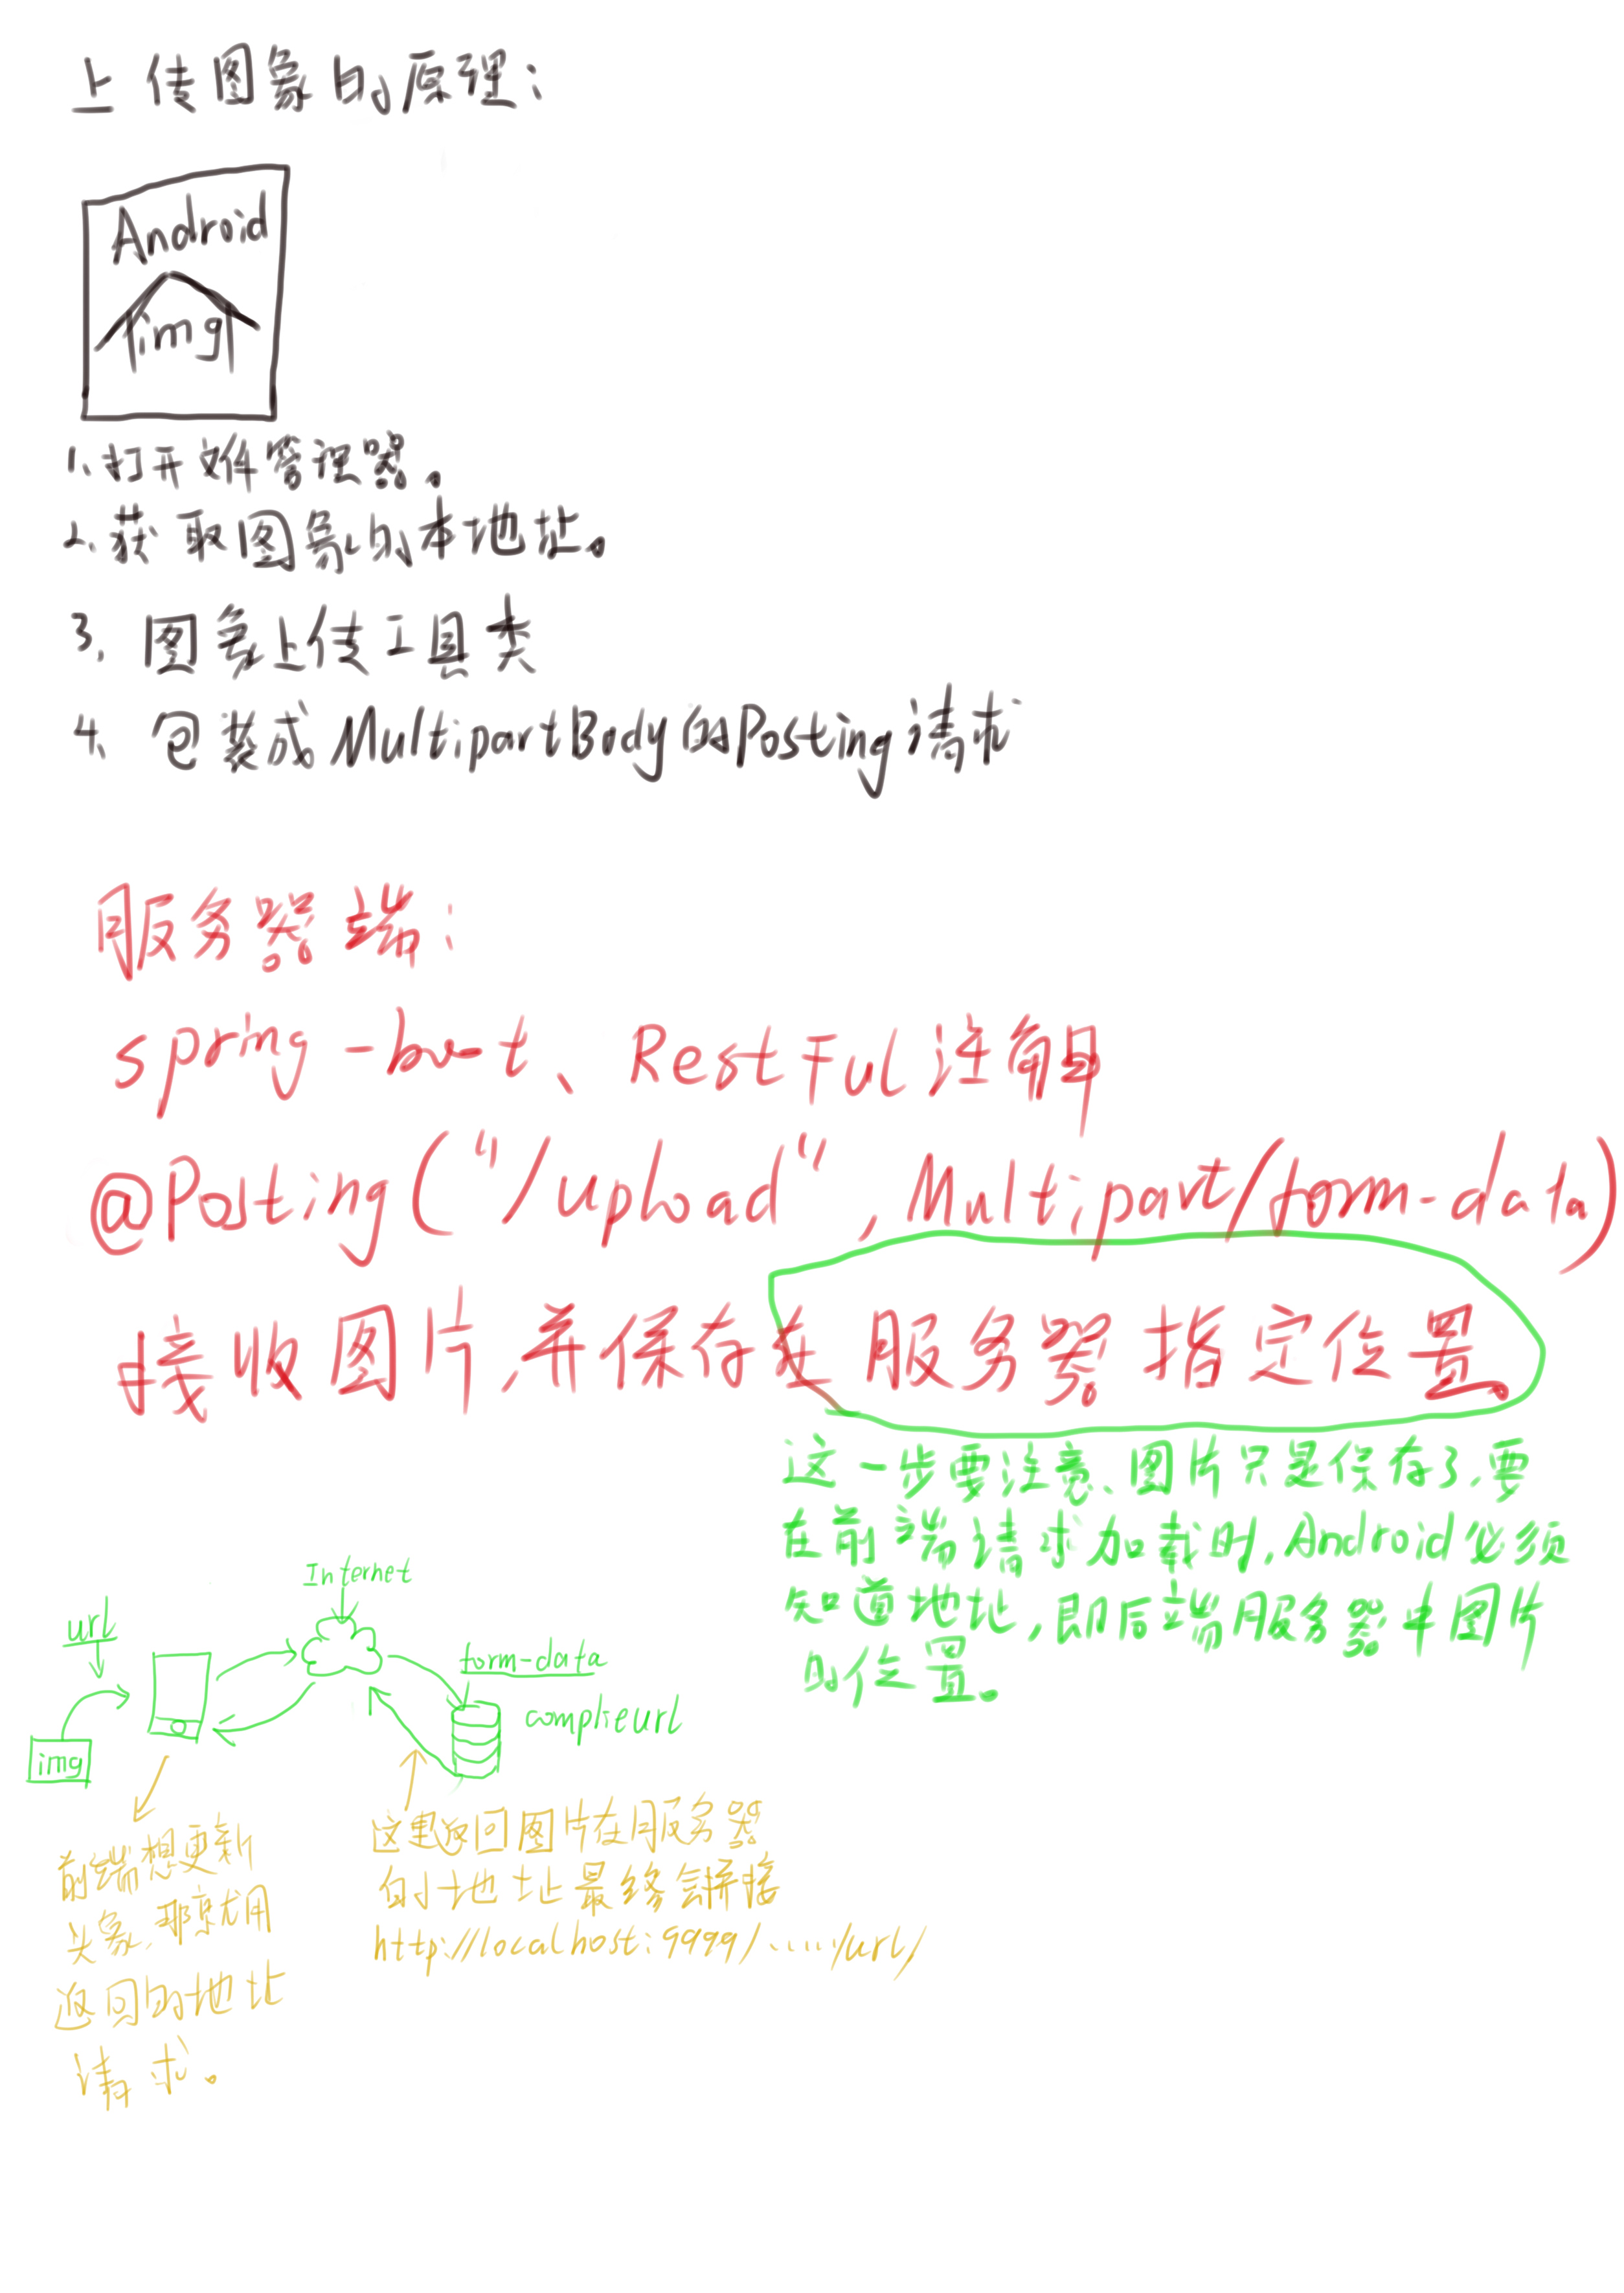 上传图象的原理：
Android
img
1、打开文件管理器。
2、获取图象的本地址。
3、图象上传工具类
4、包装成MultipartBody的Posting请求
服务器端：
spring-boot、RestFul注解
@Posting("/upload", Multipart/form-data)
接收图片,并保存在服务器指定位置。
这一步要注意、图片只是保存了,要
在前端请求加载时,Android必须
知道地址,即后端服务器中图片
的位置。
Internet
url
form-data
complieurl
img
前端想更新
头象,那就用
返回的地址
请求。
这里返回图片在服务器
的小地址最终会拼接
http://localhost:9999/....../url/